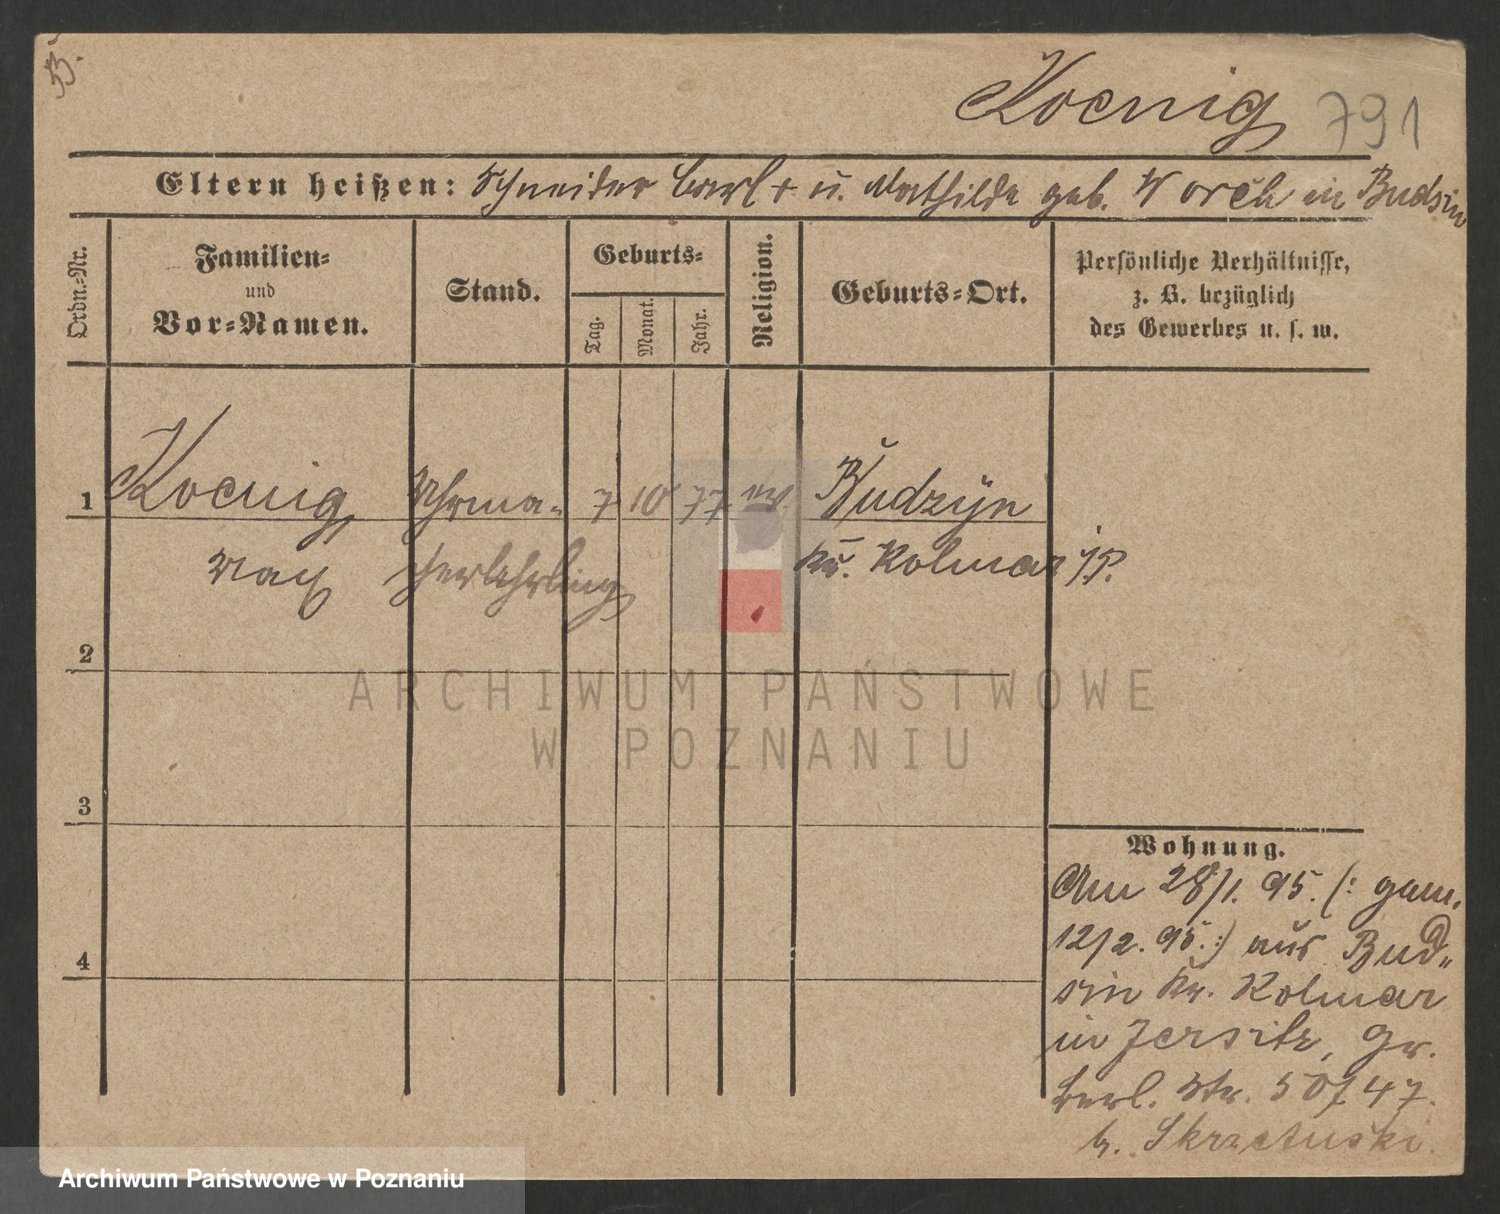 B.
Koenig 791
Eltern heißen: Schneider Carl + u. Mathilde geb. Worch in Budsin
Ordn.-Nr.
Familien-
und
Vor-Namen.
Stand.
Geburts-
Tag.
Monat.
Jahr.
Religion.
Geburts-Ort.
Persönliche Verhältnisse,
z. B. bezüglich
des Gewerbes u. s. w.
1 Koenig Uhrma- 7 10 77 ev. Budzyn
Max cherlehrling Kr. Kolmar i/P.
2
3
4
Wohnung.
Am 28/1. 95. (: gem.
12/2. 95. :) aus Bud„
sin Kr. Kolmar
in Jersitz, Gr.
Berl. Str. 50/47.
b. Skrzetuski.
ARCHIWUM PAŃSTWOWE
W POZNANIU
Archiwum Państwowe w Poznaniu